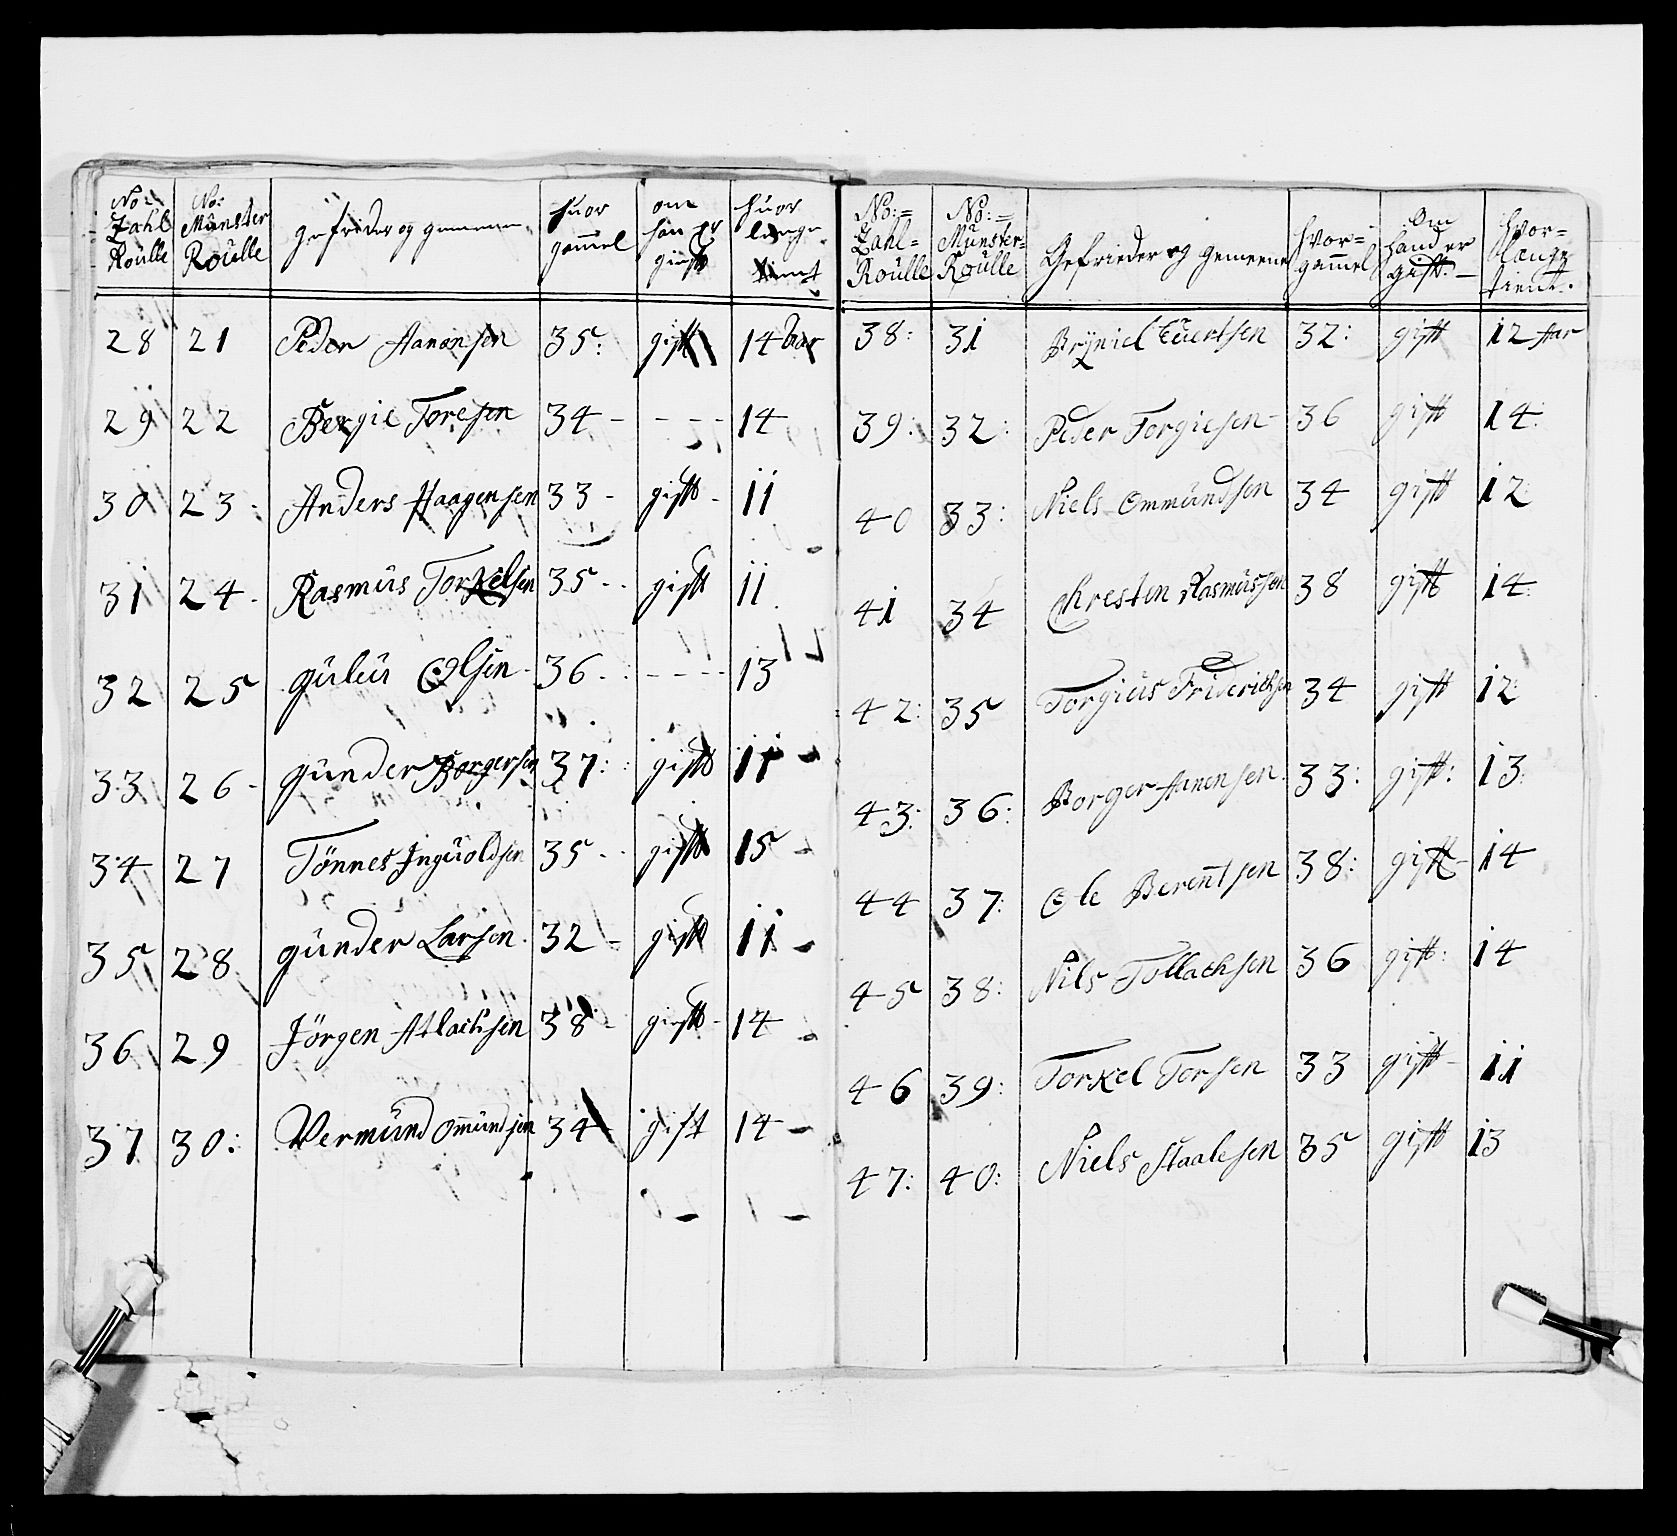 No: Zahl Roülle | No: Münster Roulle | gefrider og gemeene | huor gammel | om han er gift | huor lenge tient
28 21 Peder Aanonsen 35: gift 14 Aar
29 22 Bergie Toresen 34 - - - - 14
30 23: Anders Haagensen 33 - gift - 11
31 24 - Rasmüs Torkelsen 35 - gift 11
32 25 gülüi Olsen - 36 - - - - 13
33 26 - günder Borgersen 37: gift 11 -
34 27 Tönnes Ingüoldsen 35 - gift 15 -
35 28 günder Larsen 32 - gift 11 -
36 29 Jörgen Atlachsen 38 - gift - 14 -
37 30: Vermünd Omündsen 34 gift 14 -
No:= Zahl= Roülle | No:= Münster= Roülle | Gefrieder og gemeene | hvor= gammel | Om hand er gift: | hvor= længe tient.
38: 31 Brÿniel Eüertsen 32: gift 12 Aar
39: 32: Peder Torgiesen - 36 gift 14:
40 33: Niels Ommündsen 34 gift 12
41 34 Chresten Rasmüssen 38 gift 14:
42: 35 Torgiüs Friderichsen 34 gift 12
43: 36: Borger Aanensen 33: gift: 13
44 37: Ole Berentsen 38: gift - 14
45 38: Nils Tollachsen 36 gift: 14
46 39: Torkel Torsen 33 gift - 11
47: 40: Niels Staalesen 35 gift 13